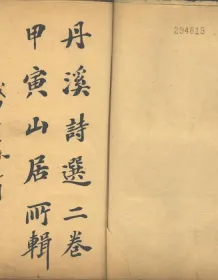 丹溪詩選二卷
甲寅山居所輯
294615